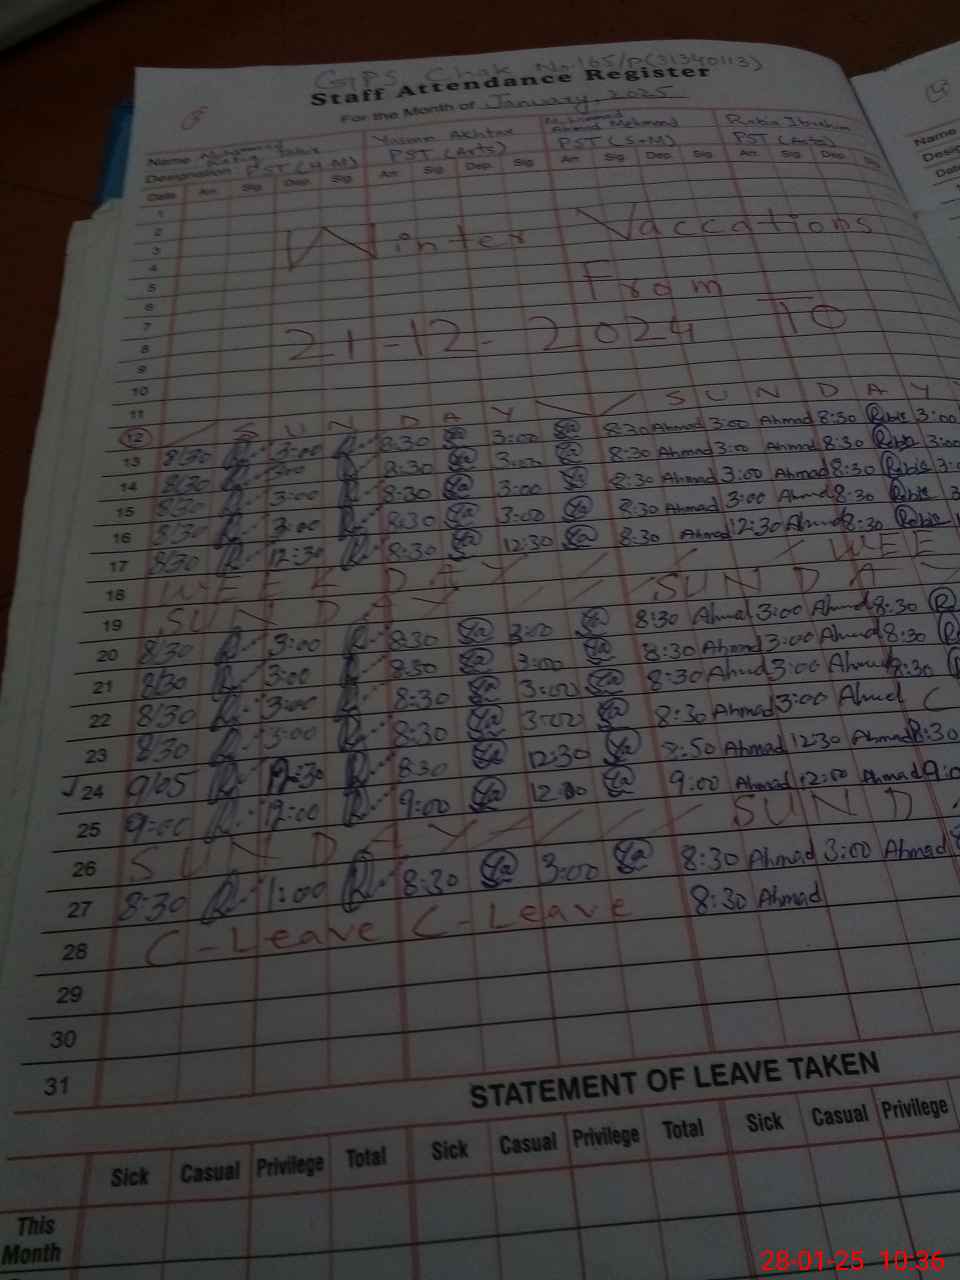 GPS Chak No.165/P(31340113)
Staff Attendance Register
For the Month of January, 2025
Name Muhammad Yasmin Akhtar Muhammad Ahmad Mehmood Rabia Ibrahim
Designation PST (H.M) PST (Arts) PST (S+M) PST (Arts)
Date Arr. Sig. Dep. Sig. Arr. Sig. Dep. Sig. Arr. Sig. Dep. Sig. Arr. Sig. Dep.
1
2 Winter Vaccations
3
4
5 From
6
7 21-12-2024 To
8
9
10
11
12 SUNDAY SUNDAY
13 8:30 3:00 8:30 3:00 8:30 Ahmad 3:00 Ahmad 8:30 Rabia 3:00
14 8:30 3:00 8:30 3:00 8:30 Ahmad 3:00 Ahmad 8:30 Rabia 3:00
15 8:30 3:00 8:30 3:00 8:30 Ahmad 3:00 Ahmad 8:30 Rabia
16 8:30 3:00 8:30 3:00 8:30 Ahmad 3:00 Ahmad 8:30 Rabia
17 8:30 12:30 8:30 12:30 8:30 Ahmad 12:30 Ahmad 8:30 Rabia
18 WEEKDAY WEE
19 SUNDAY SUNDAY
20 8:30 3:00 8:30 3:00 8:30 Ahmad 3:00 Ahmad 8:30
21 8:30 3:00 8:30 3:00 8:30 Ahmad 3:00 Ahmad 8:30
22 8:30 3:00 8:30 3:00 8:30 Ahmad 3:00 Ahmad 8:30
23 8:30 3:00 8:30 3:00 8:30 Ahmad 3:00 Ahmad C
24 9:05 12:30 8:30 12:30 8:50 Ahmad 12:30 Ahmad 8:30
25 9:00 12:00 9:00 12:00 9:00 Ahmad 12:00 Ahmad 9:0
26 SUNDAY SUND
27 8:30 1:00 8:30 3:00 8:30 Ahmad 3:00 Ahmad
28 C-Leave C-Leave 8:30 Ahmad
29
30
31
STATEMENT OF LEAVE TAKEN
Sick Casual Privilege Total Sick Casual Privilege Total Sick Casual Privilege
This
Month
28-01-25 10:36